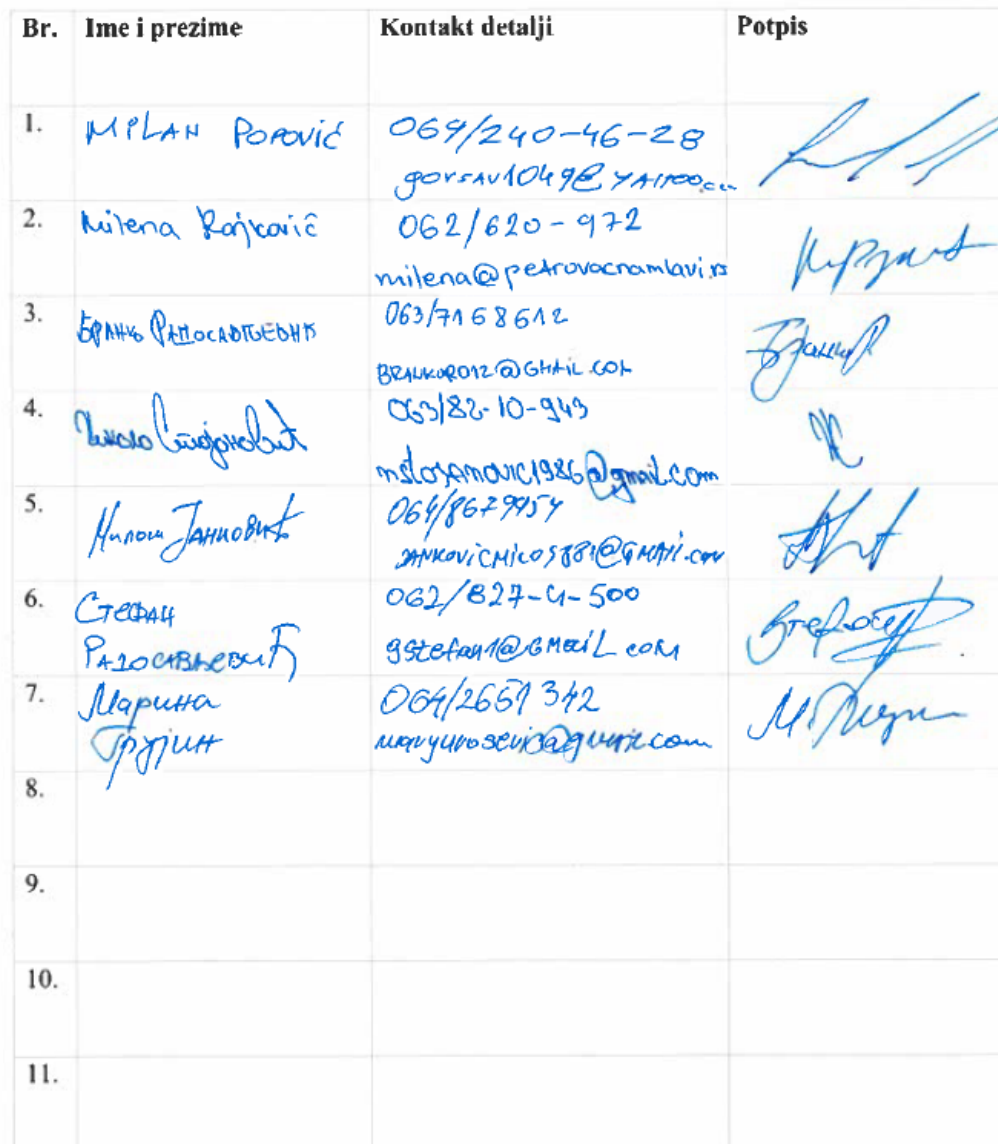 Br. Ime i prezime Kontakt detalji Potpis
1. MILAN POPOVIĆ 064/240-46-28
gorsav1049@YAHOO.com
2. Milena Rajković 062/620-972
milena@petrovacnamlavi.rs
3. БРАНКО РАДОСАВЉЕВИЋ 063/7168612
BRANKOR012@GMAIL.COM
4. Никола Стојановић 063/82-10-943
nstojanovic1986@gmail.com
5. Милош Јанковић 064/8679954
JANKOVICMILOS881@GMAIL.com
6. СТЕФАН 062/827-4-500
РАДОСАВЉЕВИЋ gstefan1@GMAIL.COM
7. Марина 064/2651342
Грујин
8.
9.
10.
11.